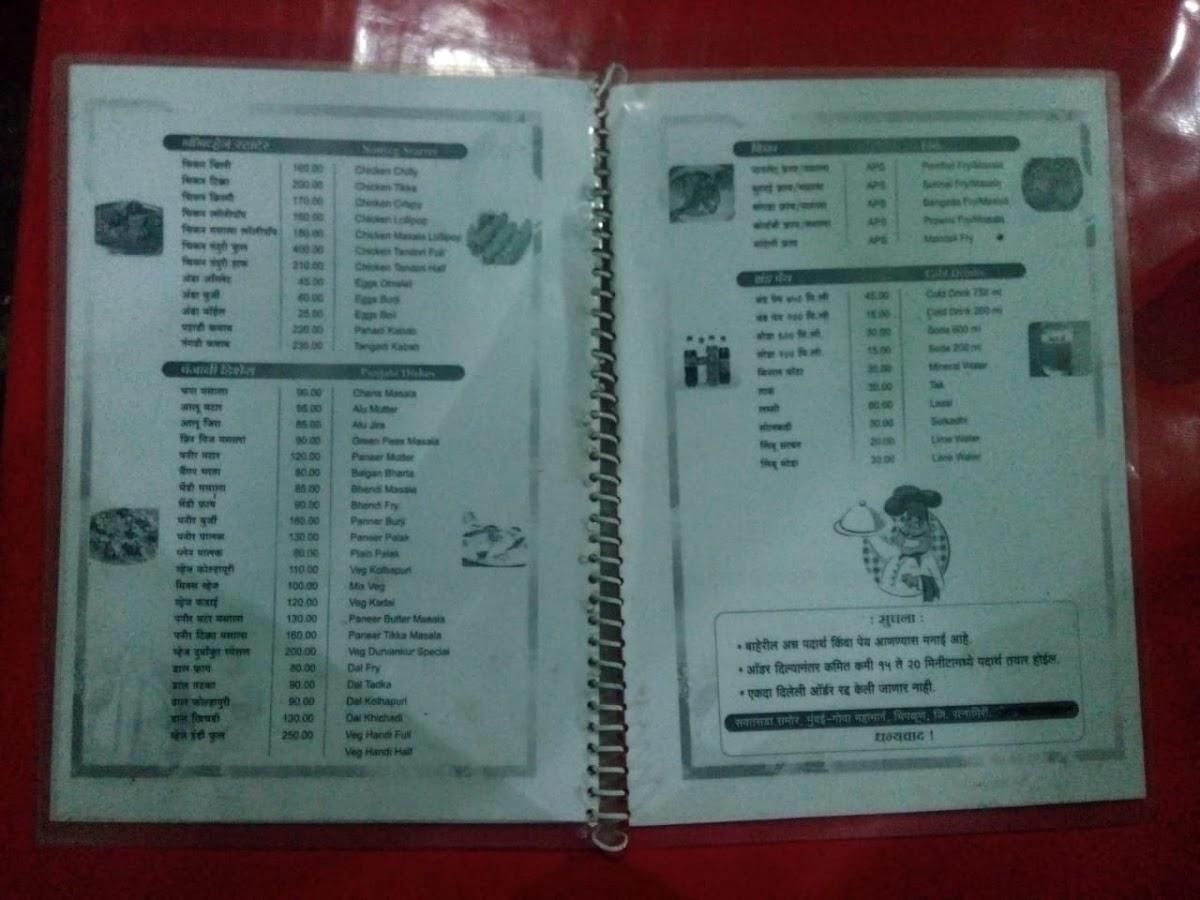 नॉनव्हेज स्टार्टर Nonveg Starter
चिकन चिली 160.00 Chicken Chilly
चिकन टिक्का 200.00 Chicken Tikka
चिकन क्रिस्पी 170.00 Chicken Crispy
चिकन लॉलीपॉप 160.00 Chicken Lollipop
चिकन मसाला लॉलीपॉप 180.00 Chicken Masala Lollipop
चिकन तंदुरी फुल 400.00 Chicken Tandori Full
चिकन तंदुरी हाफ 210.00 Chicken Tandori Half
अंडा ऑमलेट 45.00 Eggs Omalet
अंडा बुर्जी 60.00 Eggs Burji
अंडा बॉईल 25.00 Eggs Boil
पहाडी कबाब 220.00 Pahadi Kabab
तंगडी कबाब 230.00 Tangadi Kabab
पंजाबी डिशेस Punjabi Dishes
चना मसाला 90.00 Chana Masala
आलू मटर 95.00 Alu Mutter
आलू जिरा 85.00 Alu Jira
ग्रिन पिज मसाला 90.00 Green Peas Masala
पनीर मटर 120.00 Paneer Mutter
बैंगन भरता 80.00 Baigan Bharta
भेंडी मसाला 85.00 Bhendi Masala
भेंडी फ्राय 90.00 Bhendi Fry
पनीर बुर्जी 160.00 Panner Burji
पनीर पालक 130.00 Paneer Palak
प्लेन पालक 80.00 Plain Palak
व्हेज कोल्हापूरी 110.00 Veg Kolhapuri
मिक्स व्हेज 100.00 Mix Veg
व्हेज कडाई 120.00 Veg Kadai
पनीर बटर मसाला 130.00 Paneer Butter Masala
पनीर टिक्का मसाला 160.00 Paneer Tikka Masala
व्हेज दुर्वांकुर स्पेशल 200.00 Veg Durvankur Special
डाल फ्राय 80.00 Dal Fry
डाल तडका 90.00 Dal Tadka
डाल कोल्हापुरी 90.00 Dal Kolhapuri
डाल खिचडी 130.00 Dal Khichadi
व्हेज हंडी फुल 250.00 Veg Handi Full
Veg Handi Half
फिश Fish
पापलेट फ्राय/मसाला APS Pomfret Fry/Masala
सुरमई फ्राय/मसाला APS Surmai Fry/Masala
बांगडा फ्राय/मसाला APS Bangada Fry/Masala
कोलंबी फ्राय/मसाला APS Prawns Fry/Masala
मांदेली फ्राय APS Mandeli Fry
थंड पेय Cold Drinks
थंड पेय ७५० मि.ली 45.00 Cold Drink 750 ml
थंड पेय २०० मि.ली 15.00 Cold Drink 200 ml
सोडा ६०० मि.ली. 30.00 Soda 600 ml
सोडा २०० मि.ली. 15.00 Soda 200 ml
मिनरल वॉटर 20.00 Mineral Water
ताक 20.00 Tak
लस्सी 60.00 Lassi
सोलकढी 30.00 Solkadhi
लिंबू सरबत 20.00 Lime Water
लिंबू सोडा 30.00 Lime Water
: सुचना :
• बाहेरील अन्न पदार्थ किंवा पेय आणण्यास मनाई आहे.
• ऑडर दिल्यानंतर कमित कमी १५ ते २० मिनीटामध्ये पदार्थ तयार होईल.
• एकदा दिलेली ऑर्डर रद्द केली जाणार नाही.
सवतसडा समोर, मुंबई-गोवा महामार्ग, चिपळूण, जि. रत्नागिरी.
धन्यवाद !